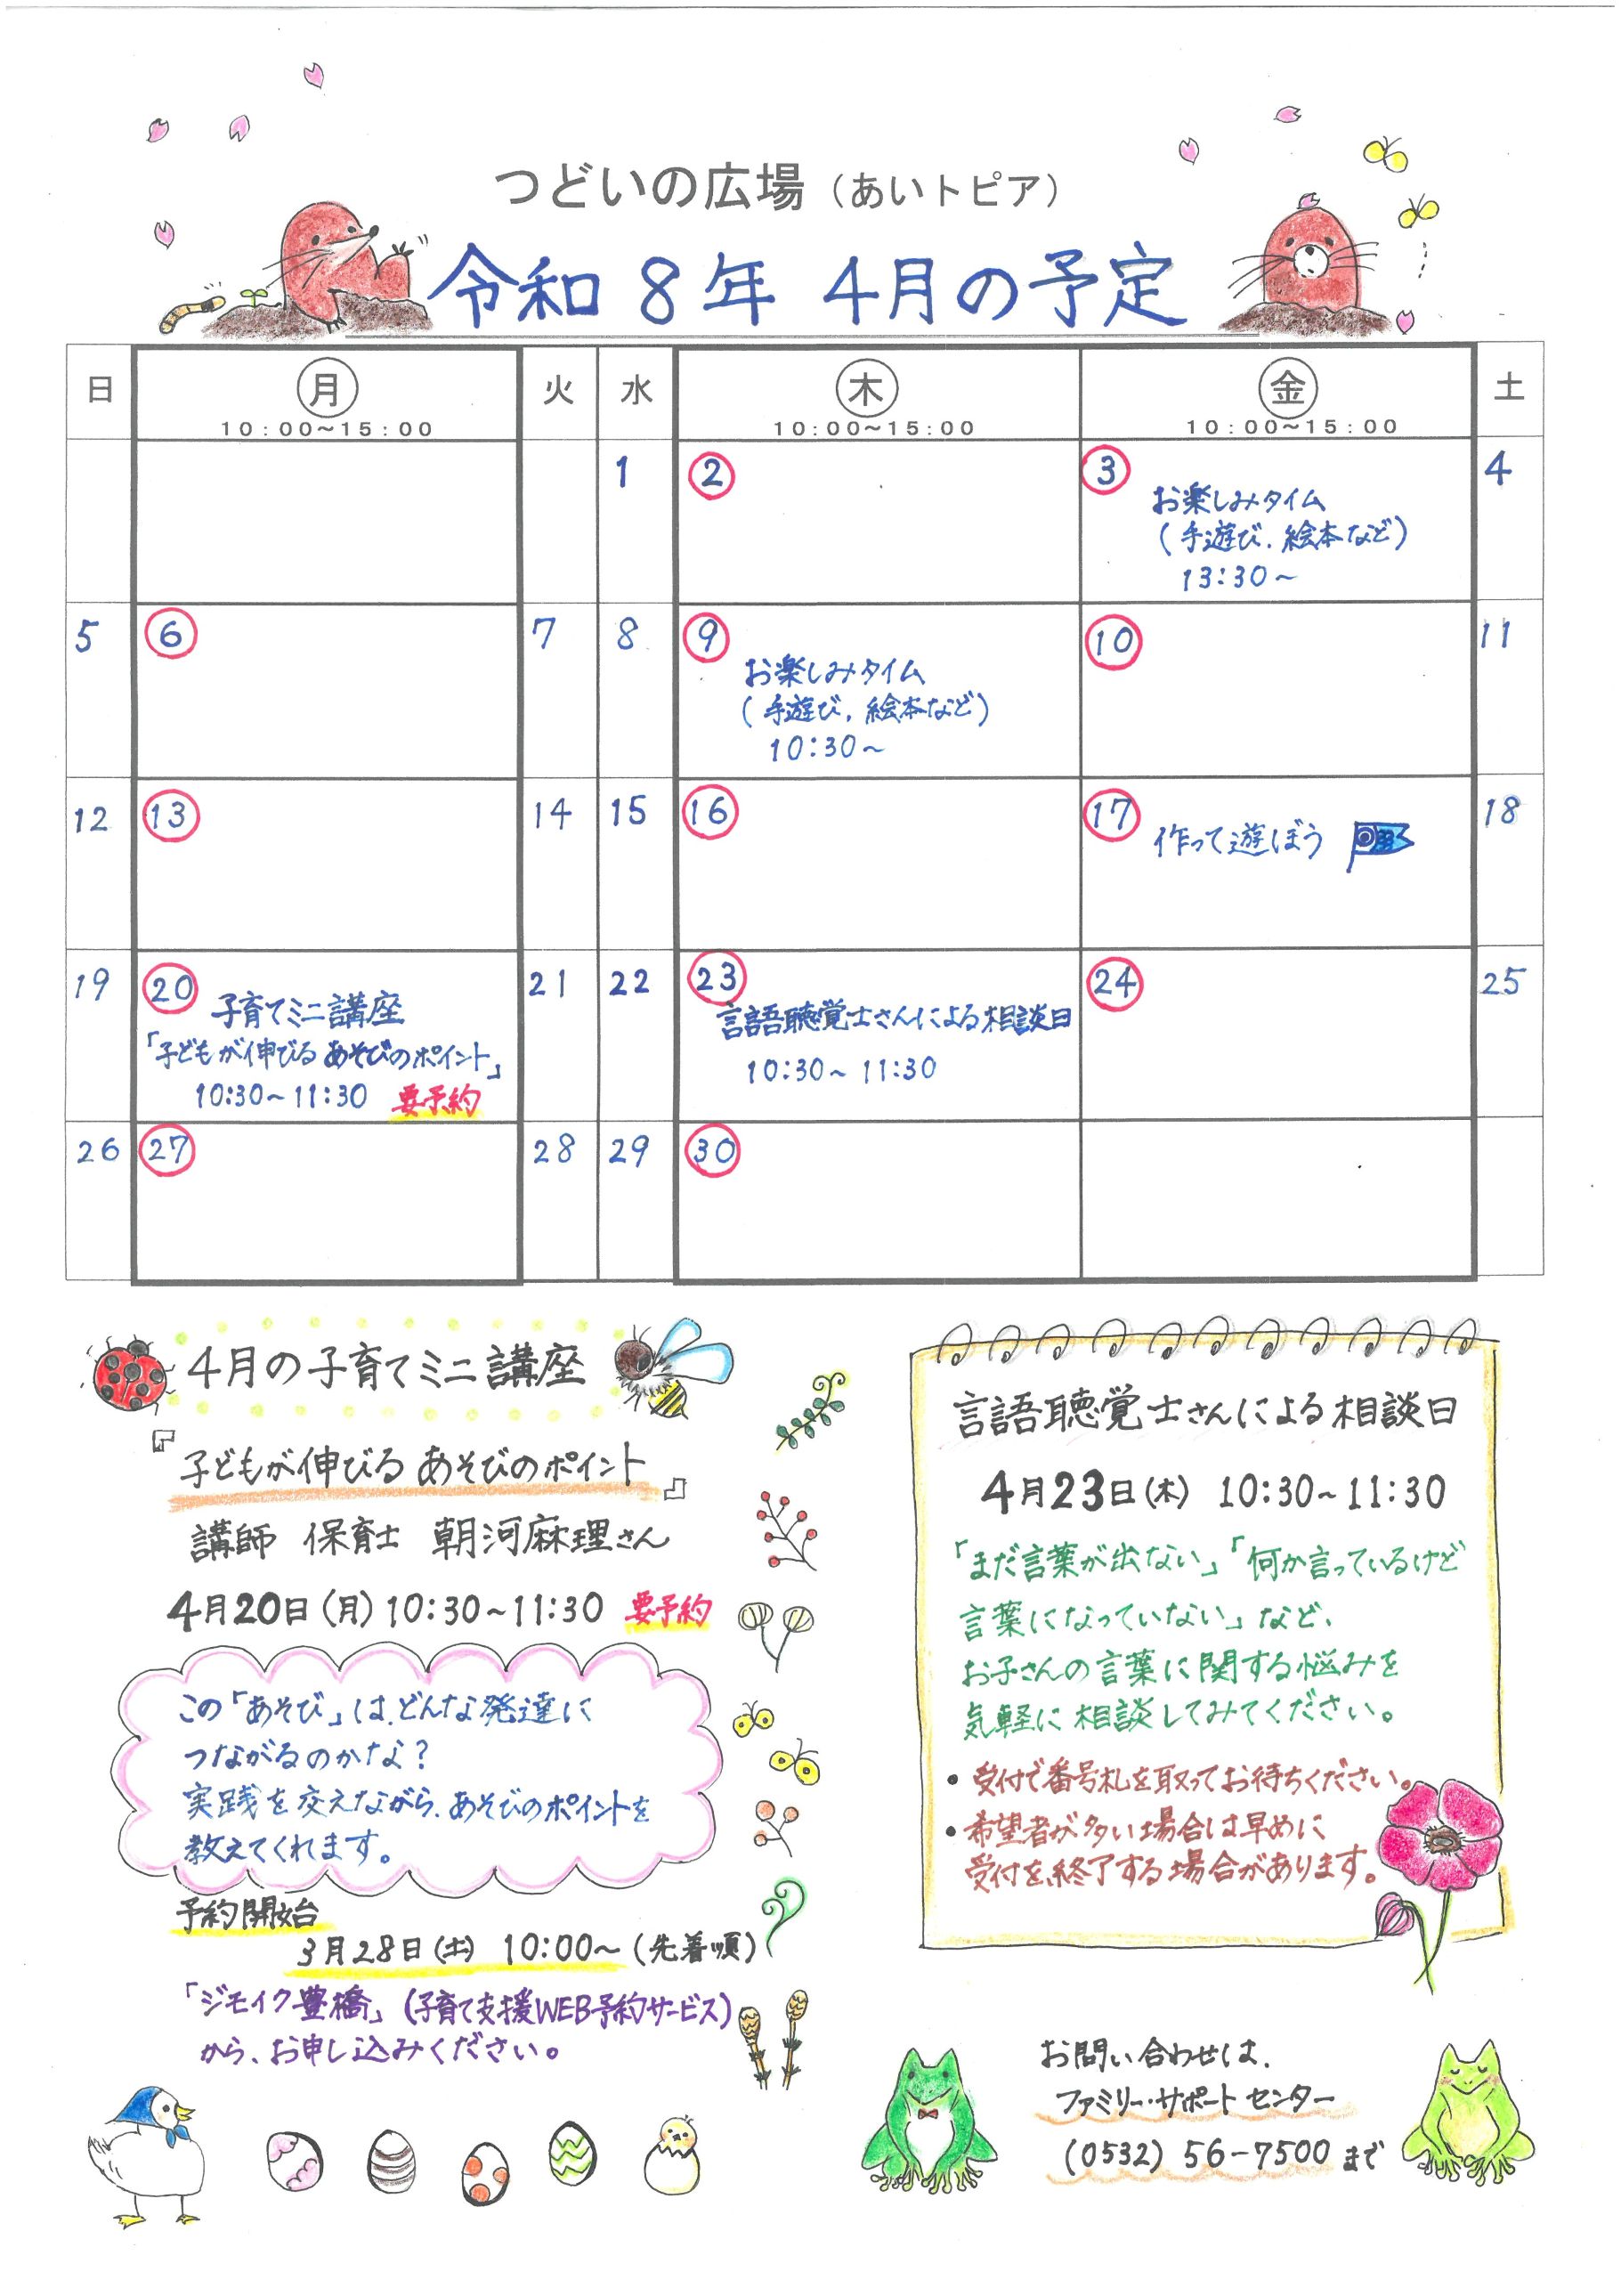 つどいの広場（あいトピア）
令和 8年 4月の予定
日 月 火 水 木 金 土
10:00~15:00 10:00~15:00 10:00~15:00
1 2 3 4
お楽しみタイム
(手遊び、絵本など)
13:30～
5 6 7 8 9 10 11
お楽しみタイム
(手遊び、絵本など)
10:30～
12 13 14 15 16 17 18
作って遊ぼう
19 20 21 22 23 24 25
子育てミニ講座
「子どもが伸びるあそびのポイント」
10:30～11:30 要予約
言語聴覚士さんによる相談日
10:30～11:30
26 27 28 29 30
4月の子育てミニ講座
『子どもが伸びるあそびのポイント』
講師 保育士 朝河麻理さん
4月20日(月)10:30～11:30 要予約
この「あそび」は、どんな発達に
つながるのかな？
実践を交えながら、あそびのポイントを
教えてくれます。
予約開始
3月28日(土) 10:00～(先着順)
「ジモイク豊橋」(子育て支援WEB予約サービス)
から、お申し込みください。
言語聴覚士さんによる相談日
4月23日(木) 10:30～11:30
「まだ言葉が出ない」「何か言っているけど
言葉になっていない」など、
お子さんの言葉に関する悩みを
気軽に相談してみてください。
・受付で番号札を取ってお待ちください。
・希望者が多い場合は早めに
受付を終了する場合があります。
お問い合わせは、
ファミリー・サポートセンター
(0532) 56-7500 まで